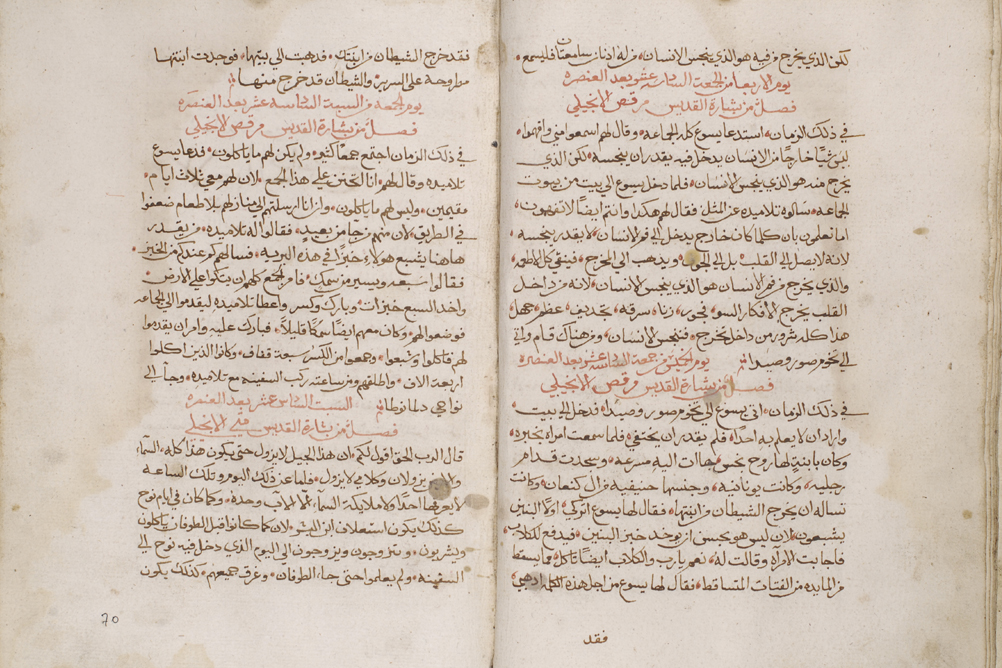 لكن الذي يخرج من فيه هو الذي ينجس الانسان من له اذنان سامعتان فليسمع
يوم الاربعا من الجمعة السادسة عشر بعد العنصرة
فصل من بشارة القديس مرقص الانجيلي
في ذلك الزمان استدعا يسوع كل الجماعه وقال لهم اسمعوا مني وافهموا
ليس شيا خارجا من الانسان يدخل فيه يقدر ان ينجسه لكن الذي
يخرج منه هو الذي ينجس الانسان فلما دخل يسوع الي بيت من بيوت
الجماعه سالوه تلاميذه عن المثل فقال لهم هكذا وانتم ايضا لا تفهمون
اما تعلمون بان كلما كان خارج يدخل الي فم الانسان لا يقدر ينجسه
لانه لا يصل الي القلب بل الي الجوف ويذهب الي المخرج فينقي كل الاطعمه
والذي يخرج من فم الانسان هو الذي ينجس الانسان لانه من داخل
القلب يخرج الافكار السو فجور زنا سرقه تجديف عظم جهل
هذا كله شرور من داخل تخرج فتنجس الانسان ومن هناك قام واتي
الي تخوم صور وصيدا يوم الخميس من جمعة السادسة عشر بعد العنصرة
فصل من بشارة القديس مرقص الانجيلي
في ذلك الزمان اتي يسوع الي تخوم صور وصيدا فدخل الي بيت
واراد ان لا يعلم به احدا فلم يقدر ان يختفي فلما سمعت امراة بخبره
وكان بابنة لها روح نجس جات اليه مسرعه وسجدت قدام
رجليه وكانت يونانيه وجنسها حنيفية من ال كنعان وكانت
تساله ان يخرج الشيطان من ابنتها فقال لها يسوع اتركي اولا البنين
يشبعون لان ليس هو بحسن ان يوخد خبز البنين فيدفع للكلاب
فاجابت الامراة وقالت له نعم يا رب والكلاب ايضا تاكل مما يسقط
من المايده من الفتات المتساقط فقال لها يسوع من اجل هذه الكلمه اذهبي
فقد
فقد خرج الشيطان من ابنتك فذهبت الي بيتها فوجدت ابنتها
مطروحة علي السرير والشيطان قد خرج منها
يوم الجمعه من السبت السادسة عشر بعد العنصره
فصل من بشارة القديس مرقص الانجيلي
في ذلك الزمان اجتمع جمعا كثير ولم يكن لهم ما ياكلون فدعا يسوع
تلاميذه وقال لهم انا اتحنن علي هذا الجمع لان لهم معي ثلاث ايام
مقيمين وليس لهم ما ياكلون وان انا ارسلتهم الي منازلهم بلا طعام ضعفوا
في الطريق لان منهم من جا من بعيد فقالوا له تلاميذه من يقدر
هاهنا يشبع هولاء خبزا في هذه البريه فسالهم كم عندكم من الخبز
فقالوا سبعه ويسير من سمك فامر الجمع كلهم ان يتكوا علي الارض
واخد السبع خبزات وبارك وكسر واعطا تلاميذه ليقدموا الي الجماعه
فوضعوا لهم وكان معهم ايضا سمكا قليلا فبارك عليه وامر ان يقدموا
لهم فاكلوا وشبعوا وجمعوا من الكسر سبعة قفاف وكانوا الذين اكلوا
اربعة الاف واطلقهم ومن ساعته ركب السفينه مع تلاميذه وجا الي
نواحي دلمانوطا السبت السادس عشر بعد العنصره
فصل من بشارة القديس متي الانجيلي
قال الرب الحق اقول لكم ان هذا الجيل لا يزول حتي يكون هذا كله السما
والارض يزولان وكلامي لا يزول فاما عن ذلك اليوم وتلك الساعه
لا يعرفها احدا ولا ملايكة السما الا الاب وحده وكما كان في ايام نوح
كذلك يكون استعلان ابن البشر لان كما كانوا قبل الطوفان ياكلون
ويشربون ويتزوجون ويزوجون الي اليوم الذي دخل فيه نوح الي
السفينه ولم يعلموا حتي جا الطوفان وغرق جميعهم كذلك يكون
70